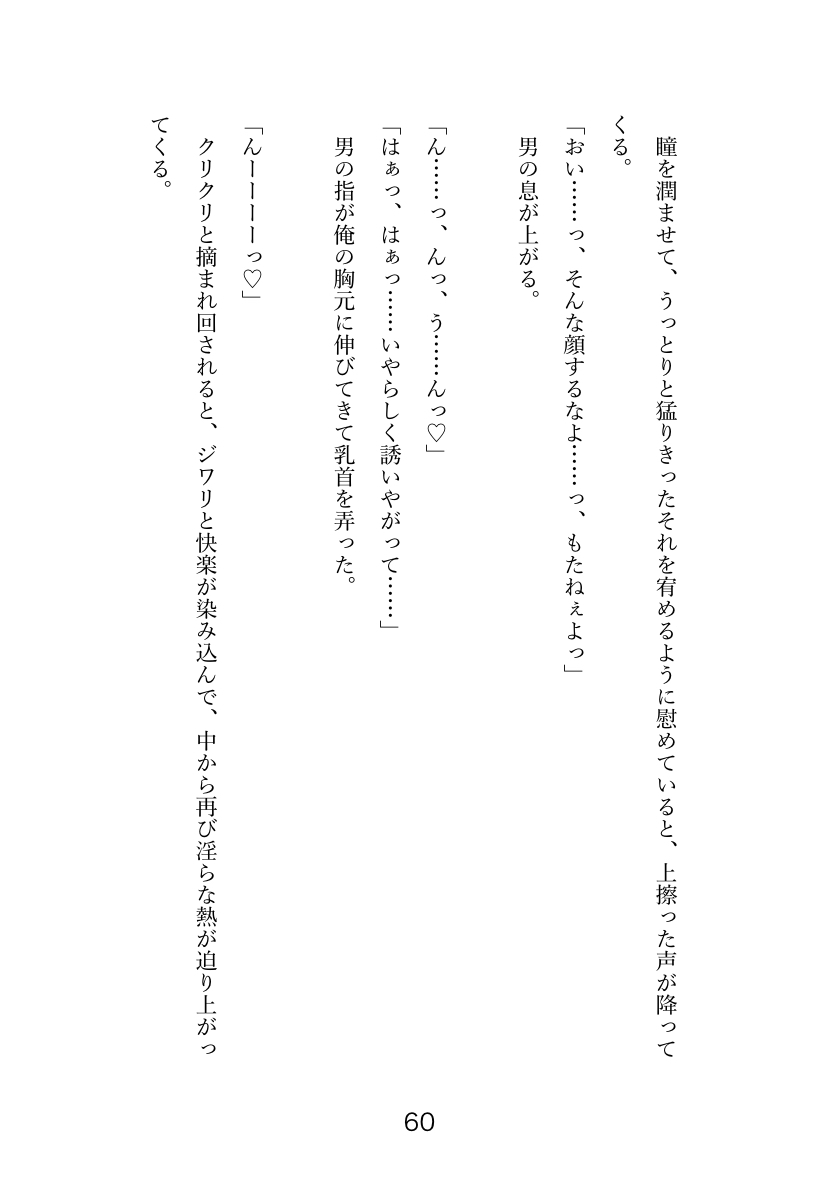 瞳を潤ませて、うっとりと猛りきったそれを宥めるように慰めていると、上擦った声が降って
くる。
「おい……っ、そんな顔するなよ……っ、もたねぇよっ」
男の息が上がる。
「ん……っ、んっ、う……んっ♡」
「はぁっ、はぁっ……いやらしく誘いやがって……」
男の指が俺の胸元に伸びてきて乳首を弄った。
「んーーーーっ♡」
クリクリと摘まれ回されると、ジワリと快楽が染み込んで、中から再び淫らな熱が迫り上がっ
てくる。
60